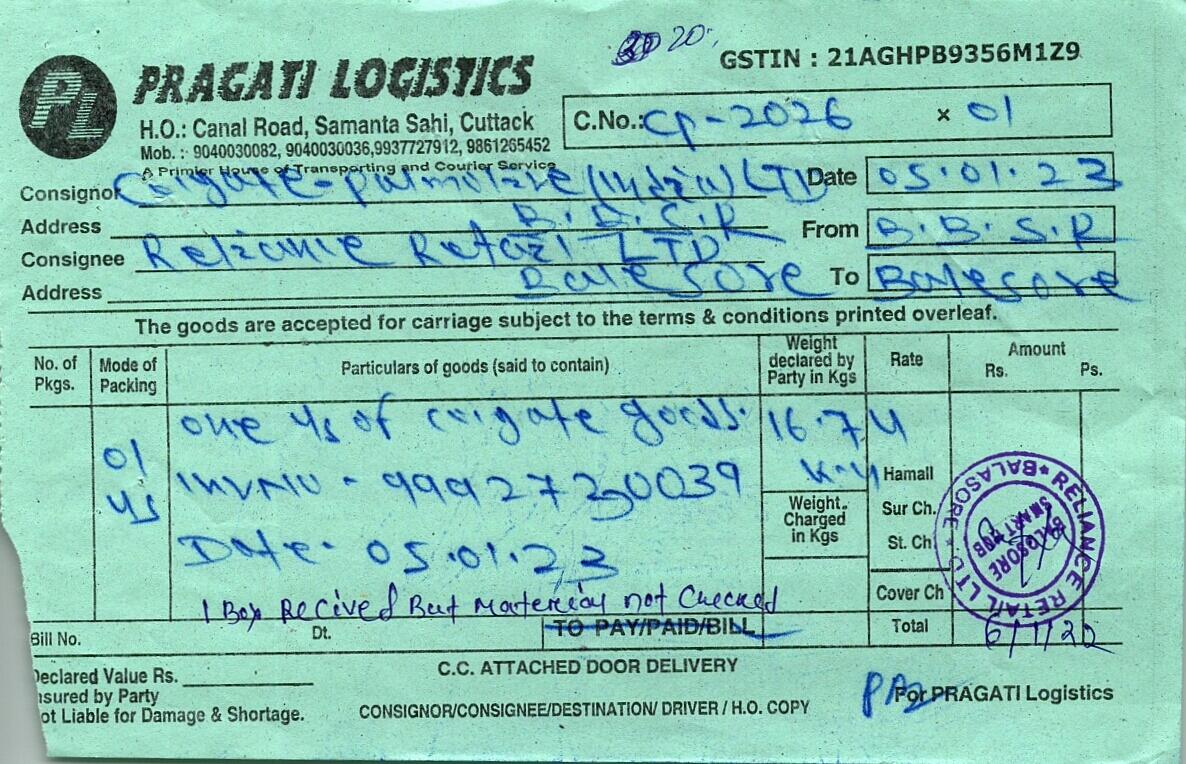 20
GSTIN : 21AGHPB9356M1Z9
PL
PRAGATI LOGISTICS
H.O.: Canal Road, Samanta Sahi, Cuttack
Mob. : 9040030082, 9040030036,9937727912, 9861265452
A Primier House of Transporting and Courier Service
C.No.: CP-2026 × 01
Consignor Colgate-palmolive (India) LTD Date 05.01.23
Address B.B.S.R From B.B.S.R
Consignee Reliance Retail LTD
Address Balesore To Balesore
The goods are accepted for carriage subject to the terms & conditions printed overleaf.
No. of Pkgs. Mode of Packing Particulars of goods (said to contain) Weight declared by Party in Kgs Rate Amount Rs. Ps.
one of colgate goods. 16.74
01 K.4 Hamall
INVNU - 9992730039
Weight. Charged in Kgs Sur Ch.
St. Ch
Date - 05.01.23
Cover Ch
1 Box Recived But Material not Checked
Bill No. Dt. TO PAY/PAID/BILL Total
RELIANCE RETAIL LTD
BALASORE
6/1/22
Declared Value Rs.
nsured by Party
ot Liable for Damage & Shortage.
C.C. ATTACHED DOOR DELIVERY
CONSIGNOR/CONSIGNEE/DESTINATION/ DRIVER / H.O. COPY
For PRAGATI Logistics